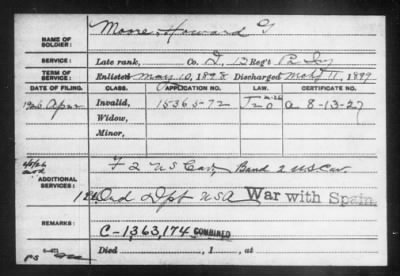 NAME OF SOLDIER: Moore, Howard G
SERVICE: Late rank, Co. I, 13 Reg't Pa Inf
TERM OF SERVICE: Enlisted May 10, 1898 Discharged Mch 11, 1899
DATE OF FILING. CLASS. APPLICATION NO. LAW. CERTIFICATE NO.
1926 Apr 2 Invalid, 15365-72 A 8-13-27
Widow,
Minor,
ADDITIONAL SERVICES: F 2 US Cav, Band 2 US Cav.
Ord Dpt USA War with Spain.
REMARKS: C-1,363,174 COMBINED
Died , 1 , at